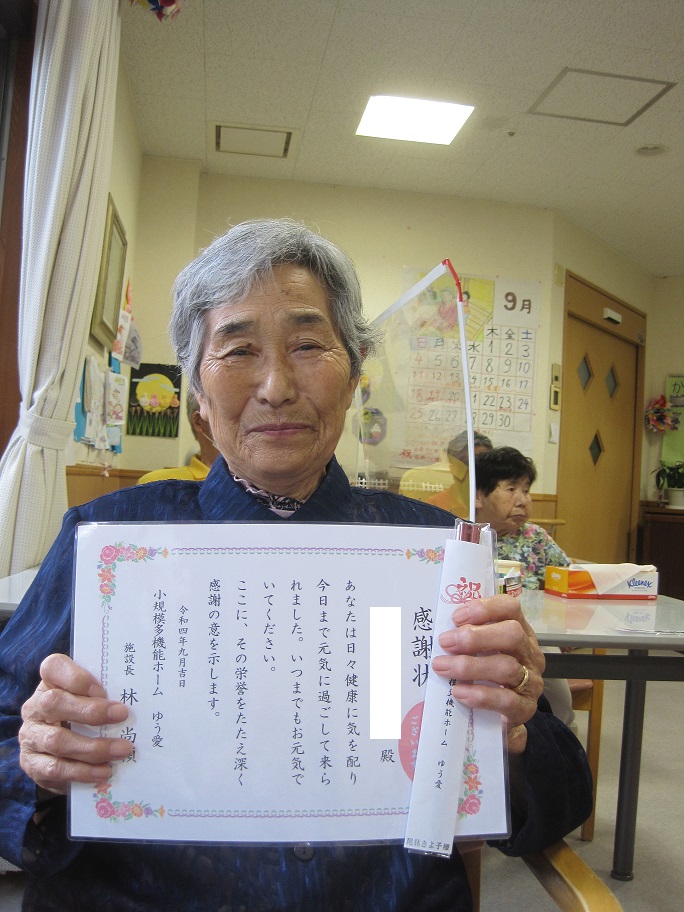 感謝状
殿
あなたは日々健康に気を配り
今日まで元気に過ごして来ら
れました。いつまでもお元気で
いてください。
ここに、その栄誉をたたえ深く
感謝の意を示します。
令和四年九月吉日
小規模多機能ホーム ゆう愛
施設長 林 尚
祝
機能ホーム ゆう愛
9月
日 月 火 水 木 金 土
1 2 3
4 5 6 7 8 9 10
11 12 13 14 15 16 17
18 19 20 21 22 23 24
25 26 27 28 29 30
Kleenex